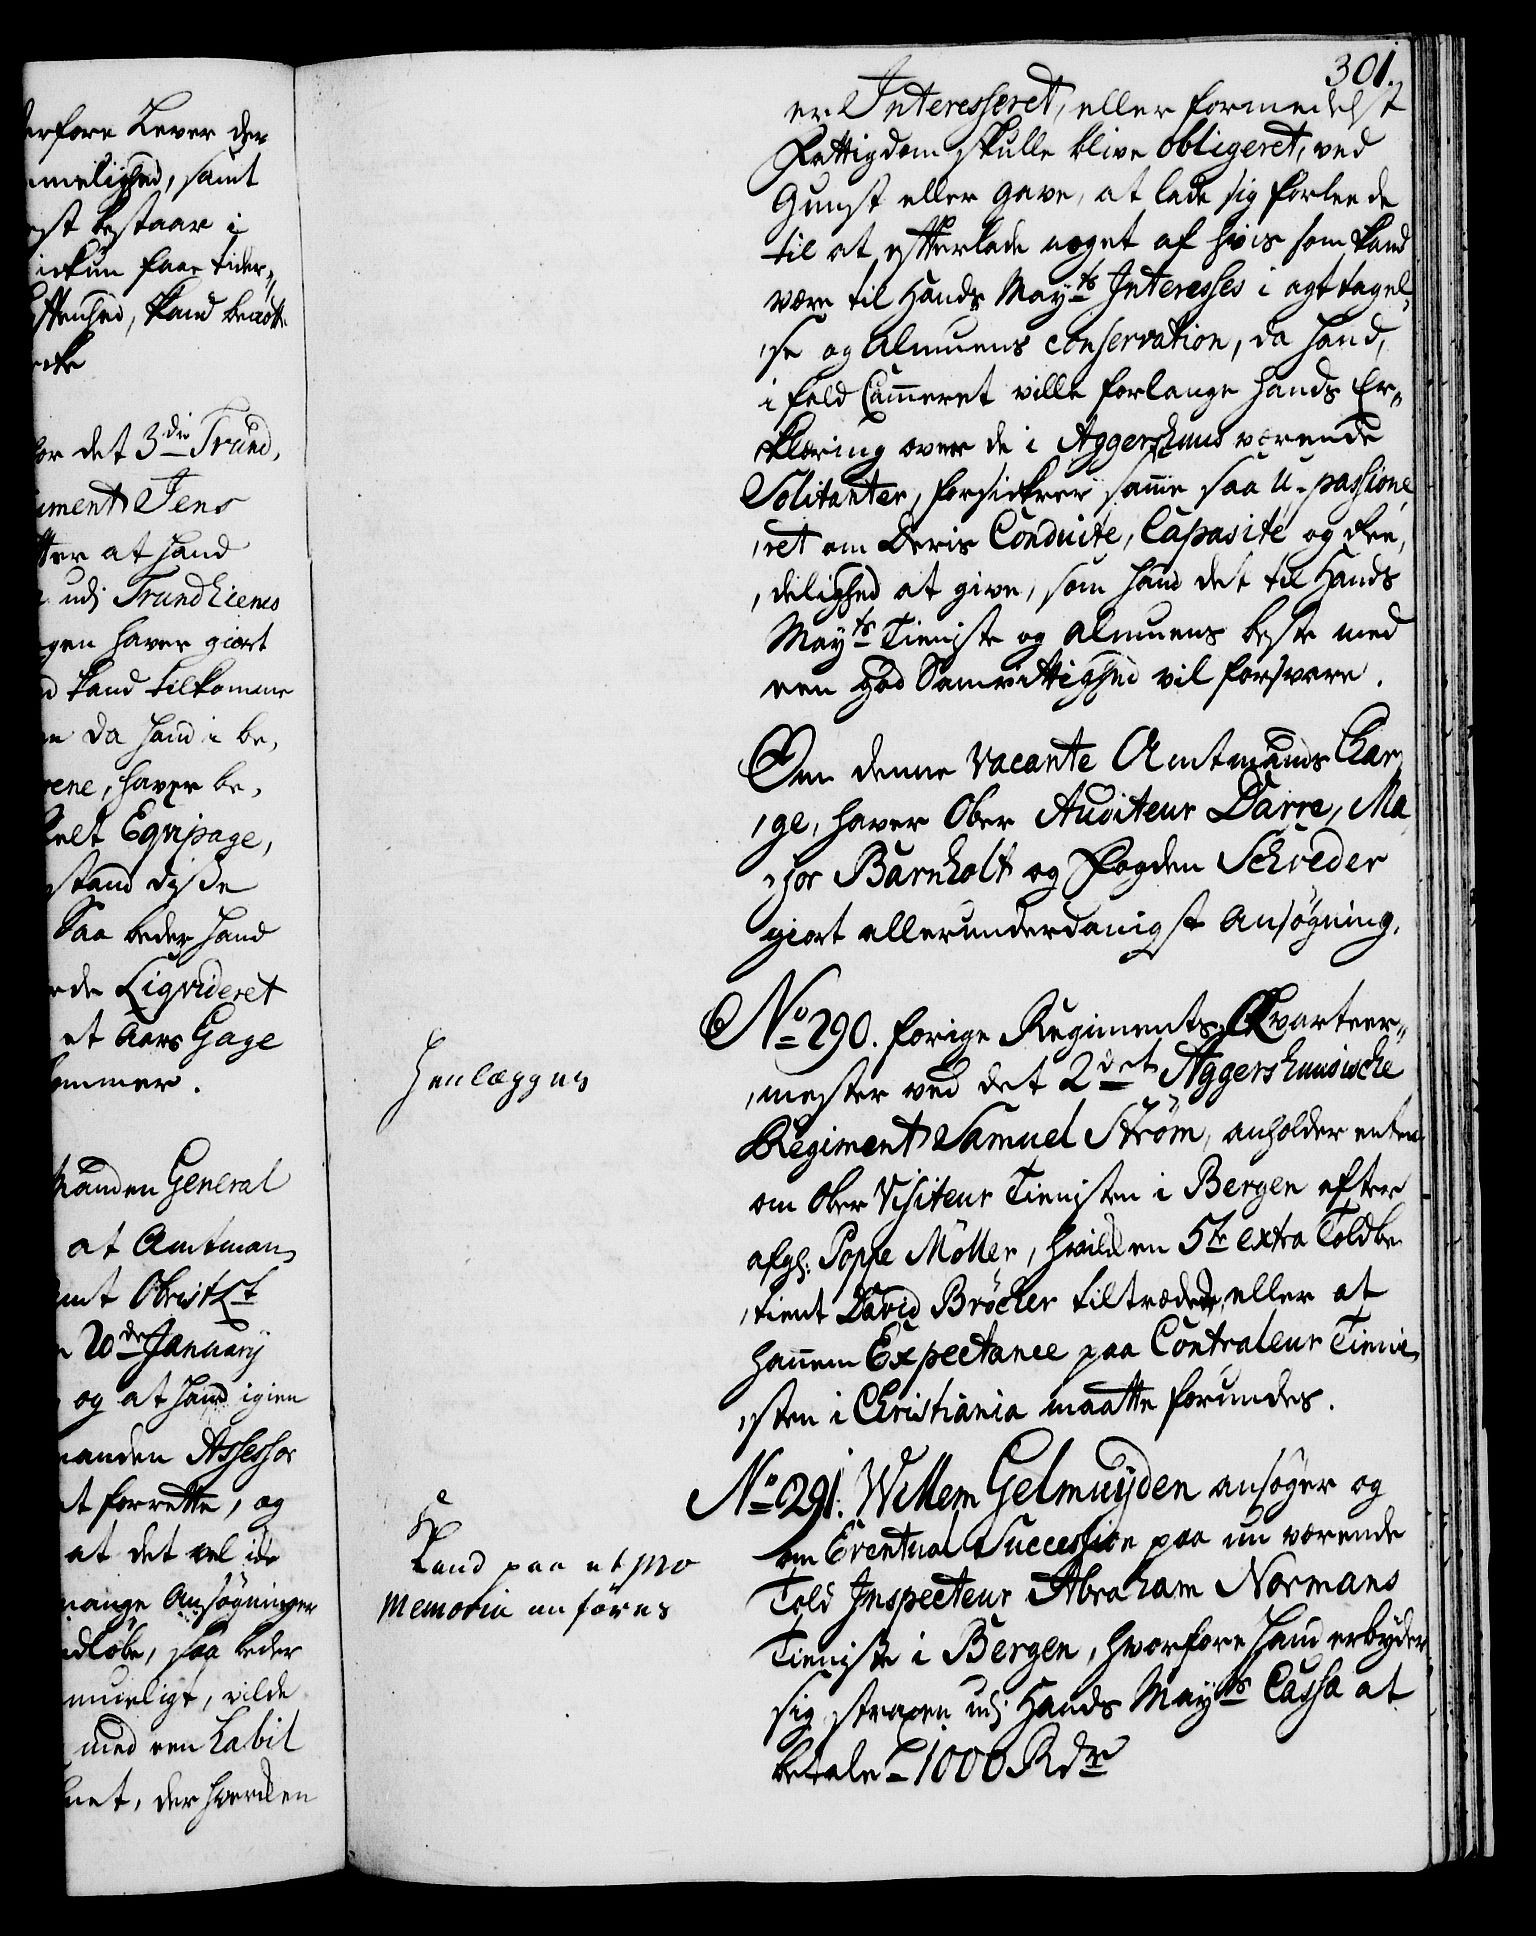 erfore Lever der
melighed, samt
st bestaar i
faae tider„
kand
det 3die Trund,
iment Jens
ter at hand
udj Trundhiems
gen haver giort
kand tilkomme
da hand i be,
rene, haver be,
Equipage,
stand diße
Saa beder hand
rde Liqvideret
et Aars Gage
kommer.
manden General
at Amtman,
amt ObristLt
20de January
og at hand igien
manden Assessor
t forrette, og
at det vel
mange Ansøgninger
indløbe, saa beder
mueligt, vilde
med een habil
net, der hverken
301.
er Interesseret, eller formedelst
Fattigdom skulle blive obligeret, ved
Gunst eller Gave, at lade sig forleede
til at efterlade noget af hvis som kand
være til Hands Mayts Interesses i agttagel„
,se og Almuens conservation, da hand,
i fald Cammeret ville forlange hands Er„
klæring over de i Aggershuus værende
Solitanter, forsickrer samme saa U-passione
,ret om Deris Conduite, Capasité og Ree,
,delighed at give, som hand det til Hands
Mayts Tieniste og Almuens beste med
een god Samvittighed vil forsvare.
Om denne vacante Amtmands Char
,ge, haver Ober Auditeur Darre, Ma
,jor Barnholt og Fogden Schreder
giort allerunderdanigst Ansøgning.
No 290. forige Regiments Qvarteer„
,mester ved det 2det Aggershuusische
Regiment Samuel Strøm, anholder enten
om Ober Visiteur Tienisten i Bergen efter
afg: Poppe Möller, hvilken 5te extra Toldbe
,tient David Bröcker tiltræder, eller at
hannem Expectance paa Contraleur Tieni„
,sten i Christiania maatte forundes.
Henlægges
No 291. Willem Gelmuyden ansøger og
om Eventual Succession paa nu værende
Told Inspecteur Abraham Normans
Tieniste i Bergen, hvorfore hand erbyder
sig straxen udj Hands Mayts Cassa at
betale 1000 Rdr
Kand paa et pro
Memoria anføres